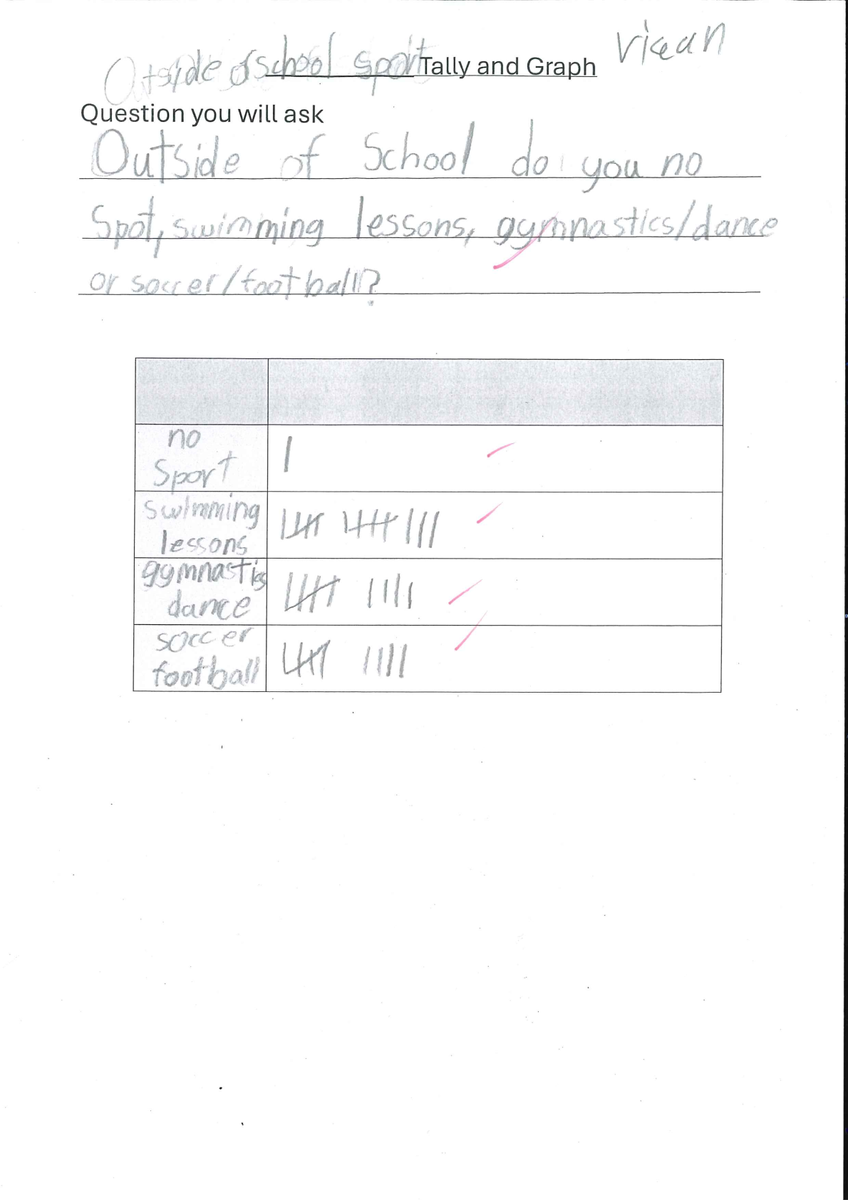 Otside of school sport Tally and Graph
Question you will ask
Outside of School do you no
Spot, swimming lessons, gymnastics/dance
or soccer/football?
no
Sport
swimming
lessons
gymnastics
dance
soccer
football